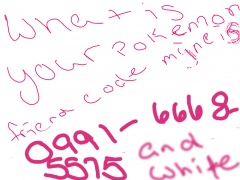 what is
your pokemon
friend code mine is
0991-6668
5575 and
white